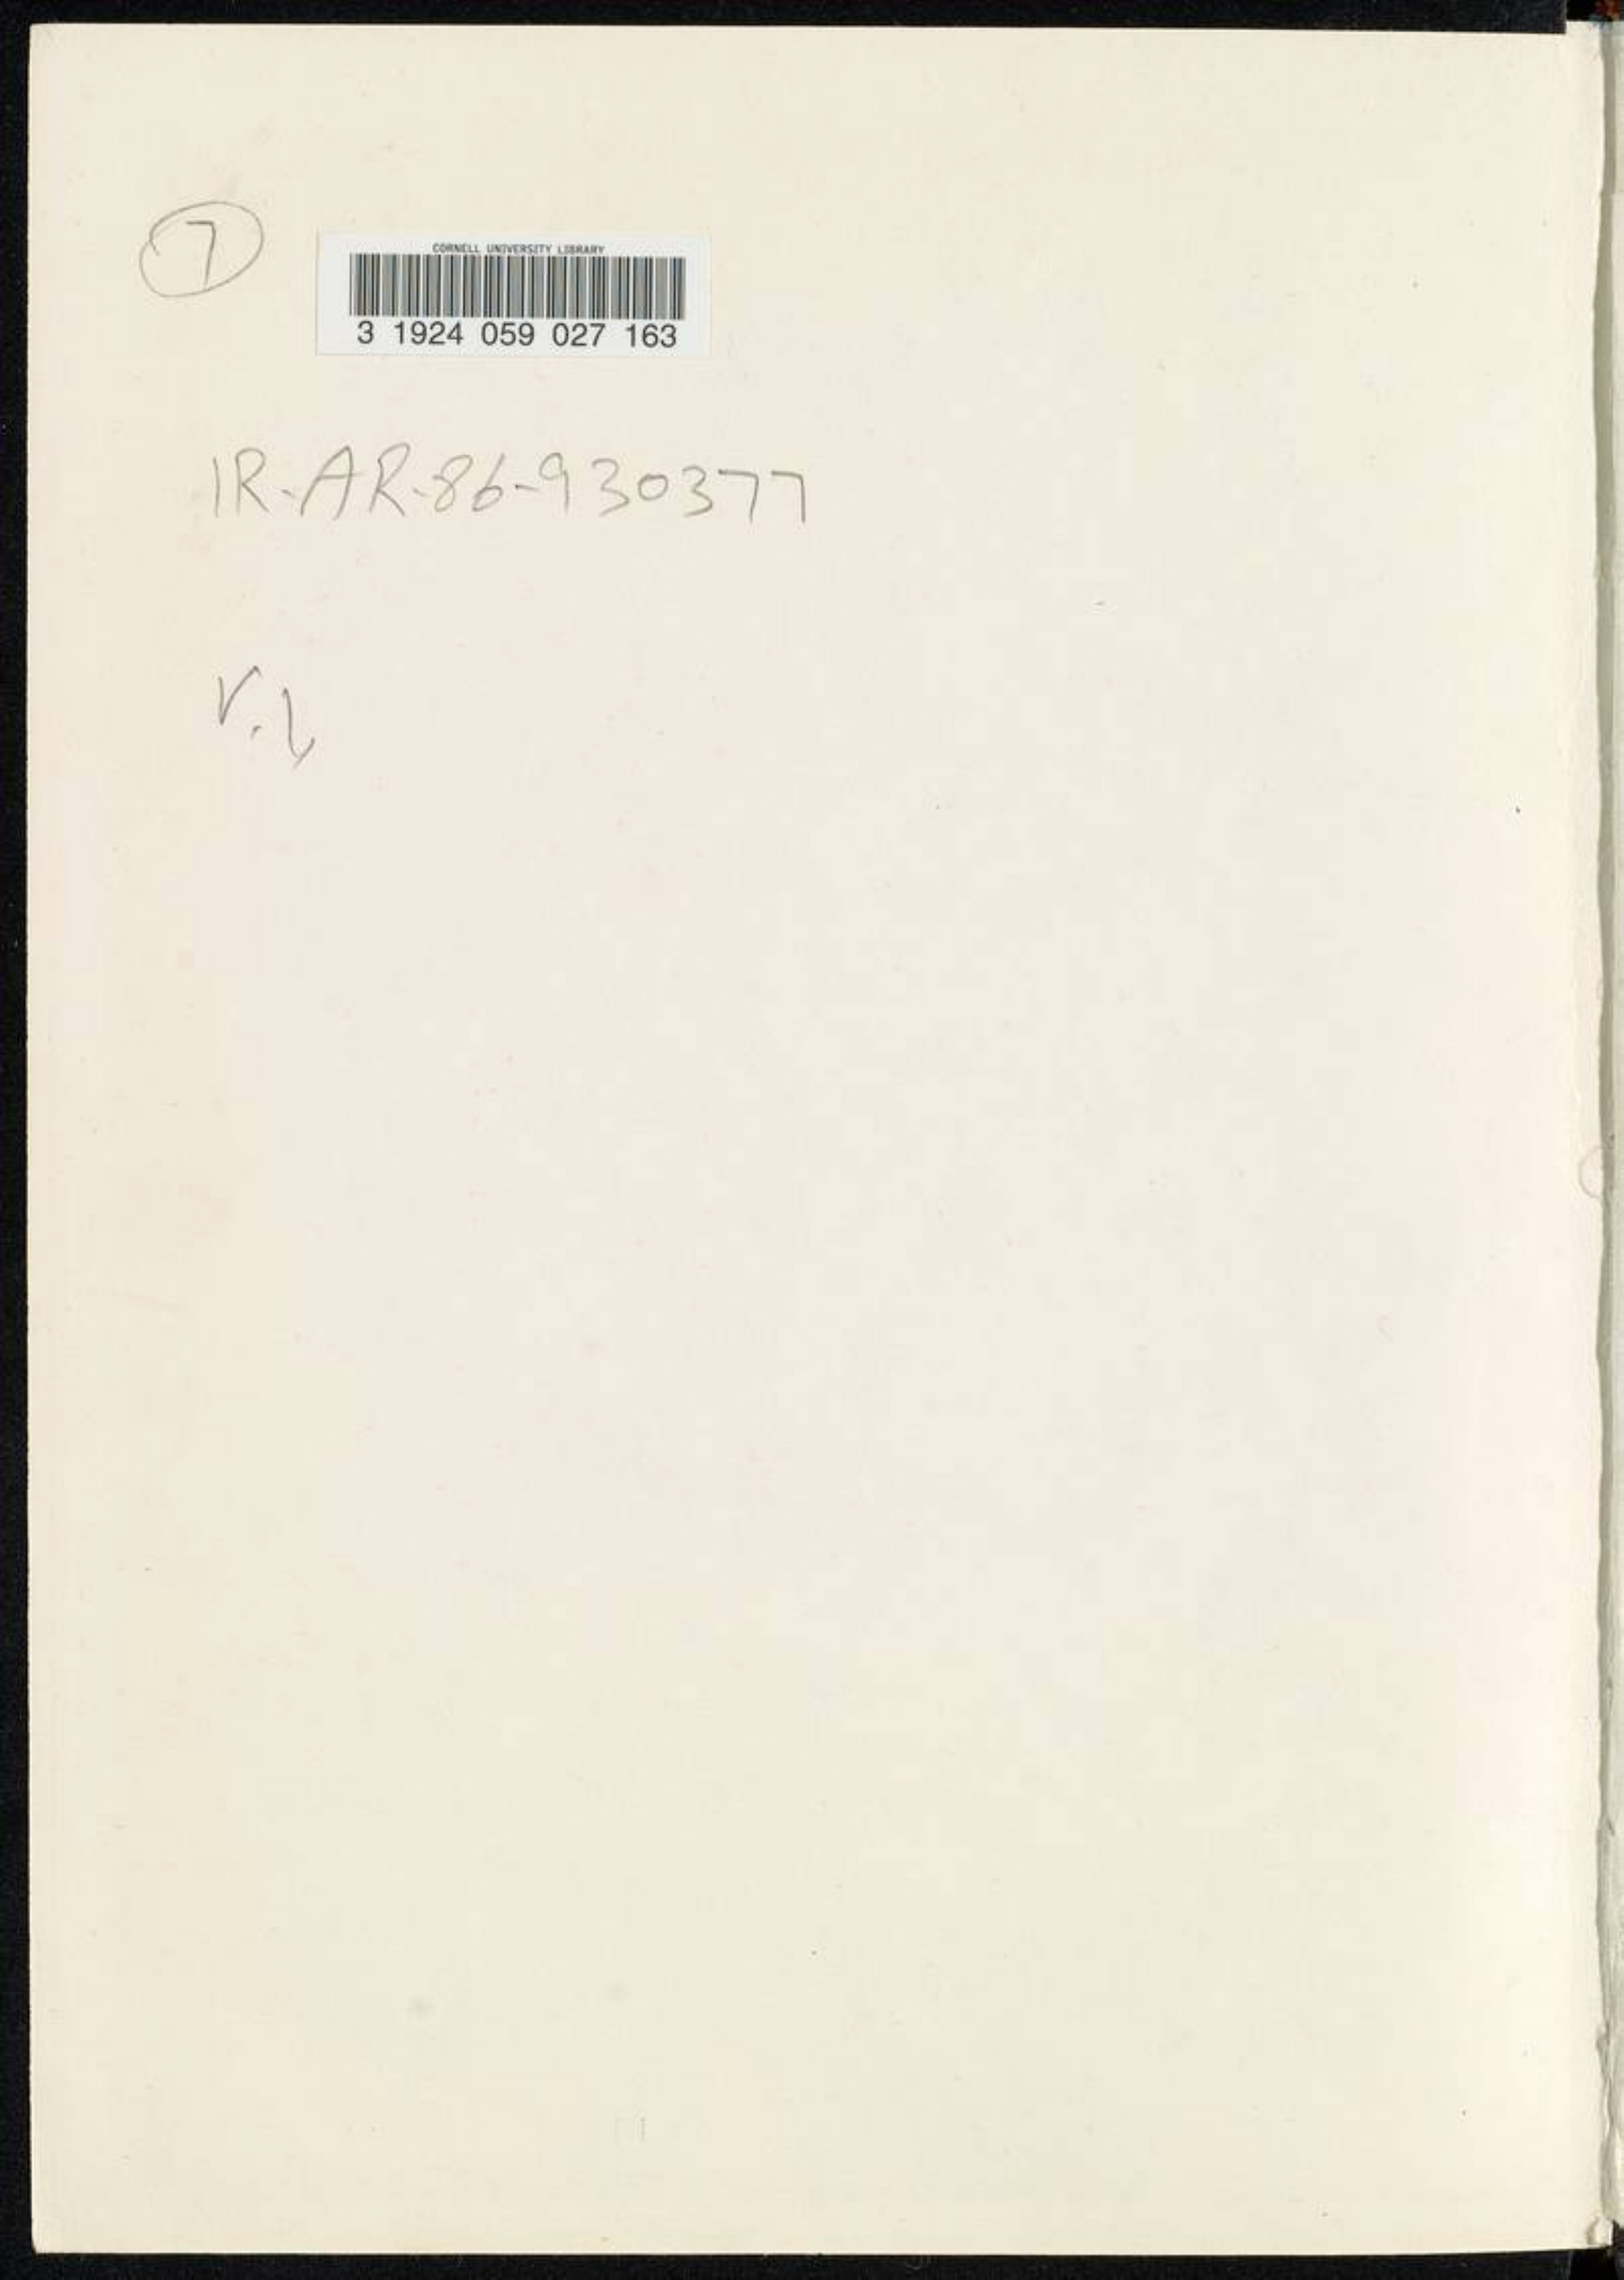 7
CORNELL UNIVERSITY LIBRARY
3 1924 059 027 163
IR-AR-86-930377